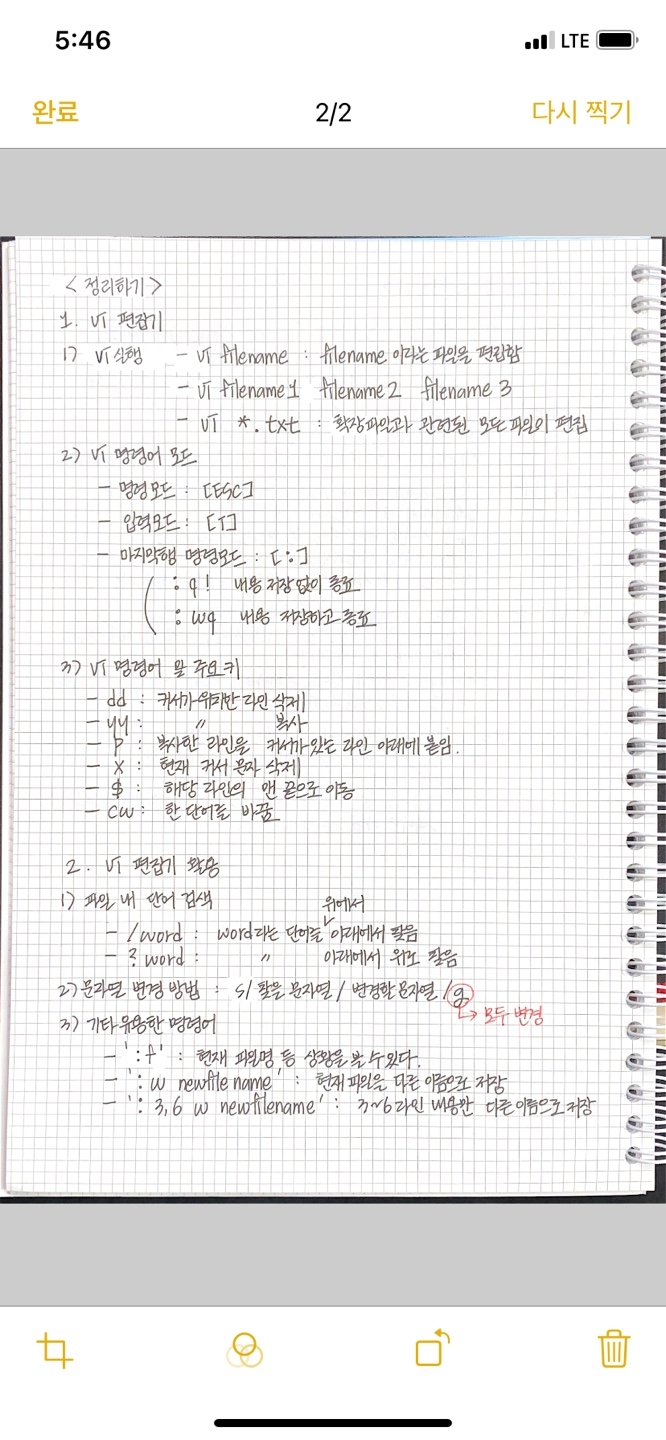 5:46 LTE
완료 2/2 다시 찍기
<정리하기>
1. VI 편집기
1) VI 실행 - VI filename : filename 이라는 파일을 편집함
- VI filename1 filename2 filename 3
- VI *.txt : 확장파일과 관련된 모든 파일이 편집
2) VI 명령어 모드
- 명령모드 : [ESC]
- 입력모드 : [I]
- 마지막행 명령모드 : [:]
:q! 내용 저장 없이 종료
:wq 내용 저장하고 종료
3) VI 명령어 및 주요 키
- dd : 커서가 위치한 라인 삭제
- yy : 〃 복사
- P : 복사한 라인을 커서가 있는 라인 아래에 붙임.
- X : 현재 커서 문자 삭제
- $ : 해당 라인의 맨 끝으로 이동
- cw : 한 단어를 바꿈
2. VI 편집기 활용
1) 파일 내 단어 검색
위에서
- /word : word라는 단어를 아래에서 찾음
- ? word : 〃 아래에서 위로 찾음
2) 문자열 변경 방법 : s/ 찾을 문자열 / 변경할 문자열 /g
↳ 모두 변경
3) 기타 유용한 명령어
- ':f' : 현재 파일명 등 상황을 볼 수 있다.
- ': w newfile name' : 현재 파일을 다른 이름으로 저장
- ': 3,6 w newfilename' : 3~6 라인 내용만 다른 이름으로 저장